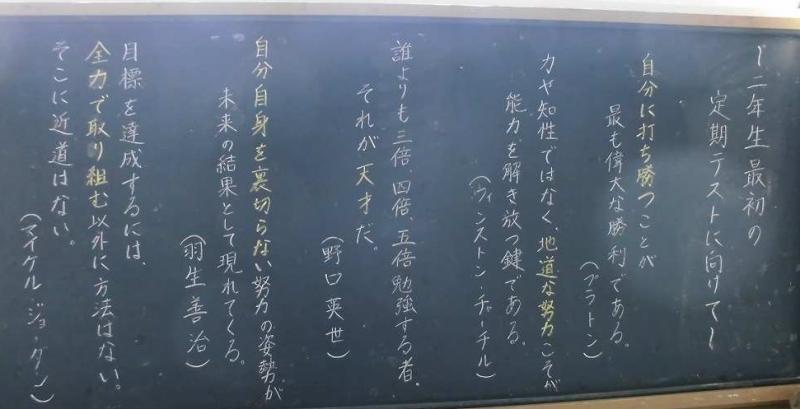 ～二年生最初の
定期テストに向けて～
自分に打ち勝つことが
最も偉大な勝利である。
(プラトン)
力や知性ではなく、地道な努力こそが
能力を解き放つ鍵である。
(ウィンストン・チャーチル)
誰よりも三倍、四倍、五倍勉強する者。
それが天才だ。
(野口英世)
自分自身を裏切らない努力の姿勢が
未来の結果として現れてくる。
(羽生善治)
目標を達成するには、
全力で取り組む以外に方法はない。
そこに近道はない。
(マイケル・ジョーダン)